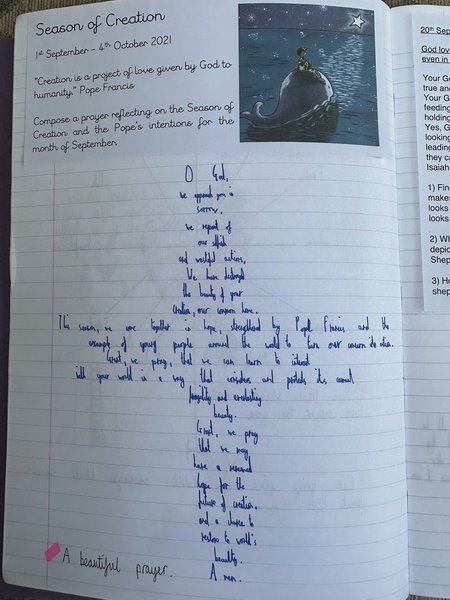 Season of Creation
1st September - 4th October 2021
"Creation is a project of love given by God to
humanity." Pope Francis
Compose a prayer reflecting on the Season of
Creation and the Pope's intentions for the
month of September.
O God,
we approach you in
sorrow.
we repent of
our selfish
and wasteful actions.
We have destroyed
the beauty of your
Creation, our common home.
This season, we come together in hope, strengthened by Pope Francis and the
example of young people around the world to turn our concern into action.
Grant, we pray, that we can learn to interact
with your world in a way that considers and protects its
fragility and everlasting
beauty.
Grant, we pray
that we may
have a renewed
hope for the
future of creation.
and a chance to
restore to world's
beauty.
A men.
A beautiful prayer.
20th Sep
God lov
even in
Your G
true an
Your G
feeding
holding
Yes, G
looking
leading
they ca
Isaiah
1) Fin
makes
looks
looks
2) Wh
depic
Shep
3) Ho
shep